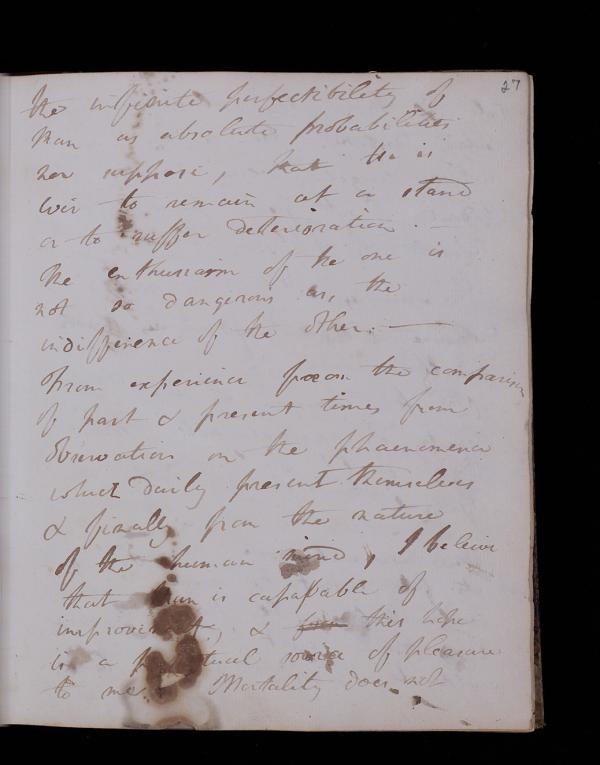 27
the infinite perfectibility of
Man as absolute probabilities
nor suppose, that he is
ever to remain at a stand
or to suffer deterioration. —
The enthusiasm of the one is
not so dangerous as, the
indifference of the other. —
From experience from the comparison
of past & present times from
observation on the phaenomena
which daily present themselves
& finally from the nature
of the human mind, I believe
that Man is capable of
improvement, & this hope
is a perpetual source of pleasure
to me. Mortality does not